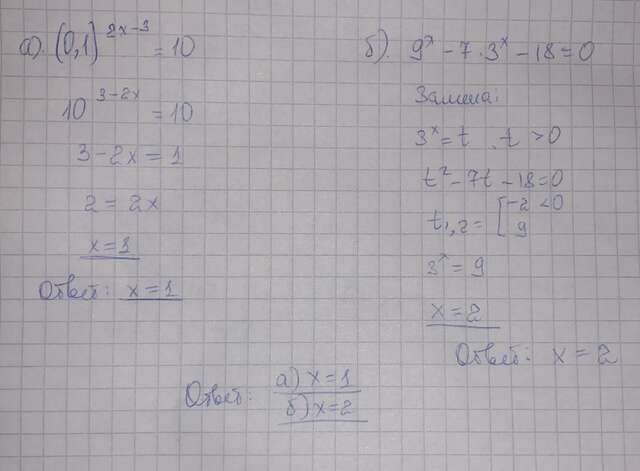 а). (0,1)^{2x-3} = 10
10^{3-2x} = 10
3-2x = 1
2 = 2x
x=1
Ответ: x=1
б). 9^x - 7·3^x - 18 = 0
Замена:
3^x = t, t > 0
t^2 - 7t - 18 = 0
t_{1,2} = [ -2 < 0
9
3^x = 9
x = 2
Ответ: x = 2
Ответ: а) x = 1
б) x = 2